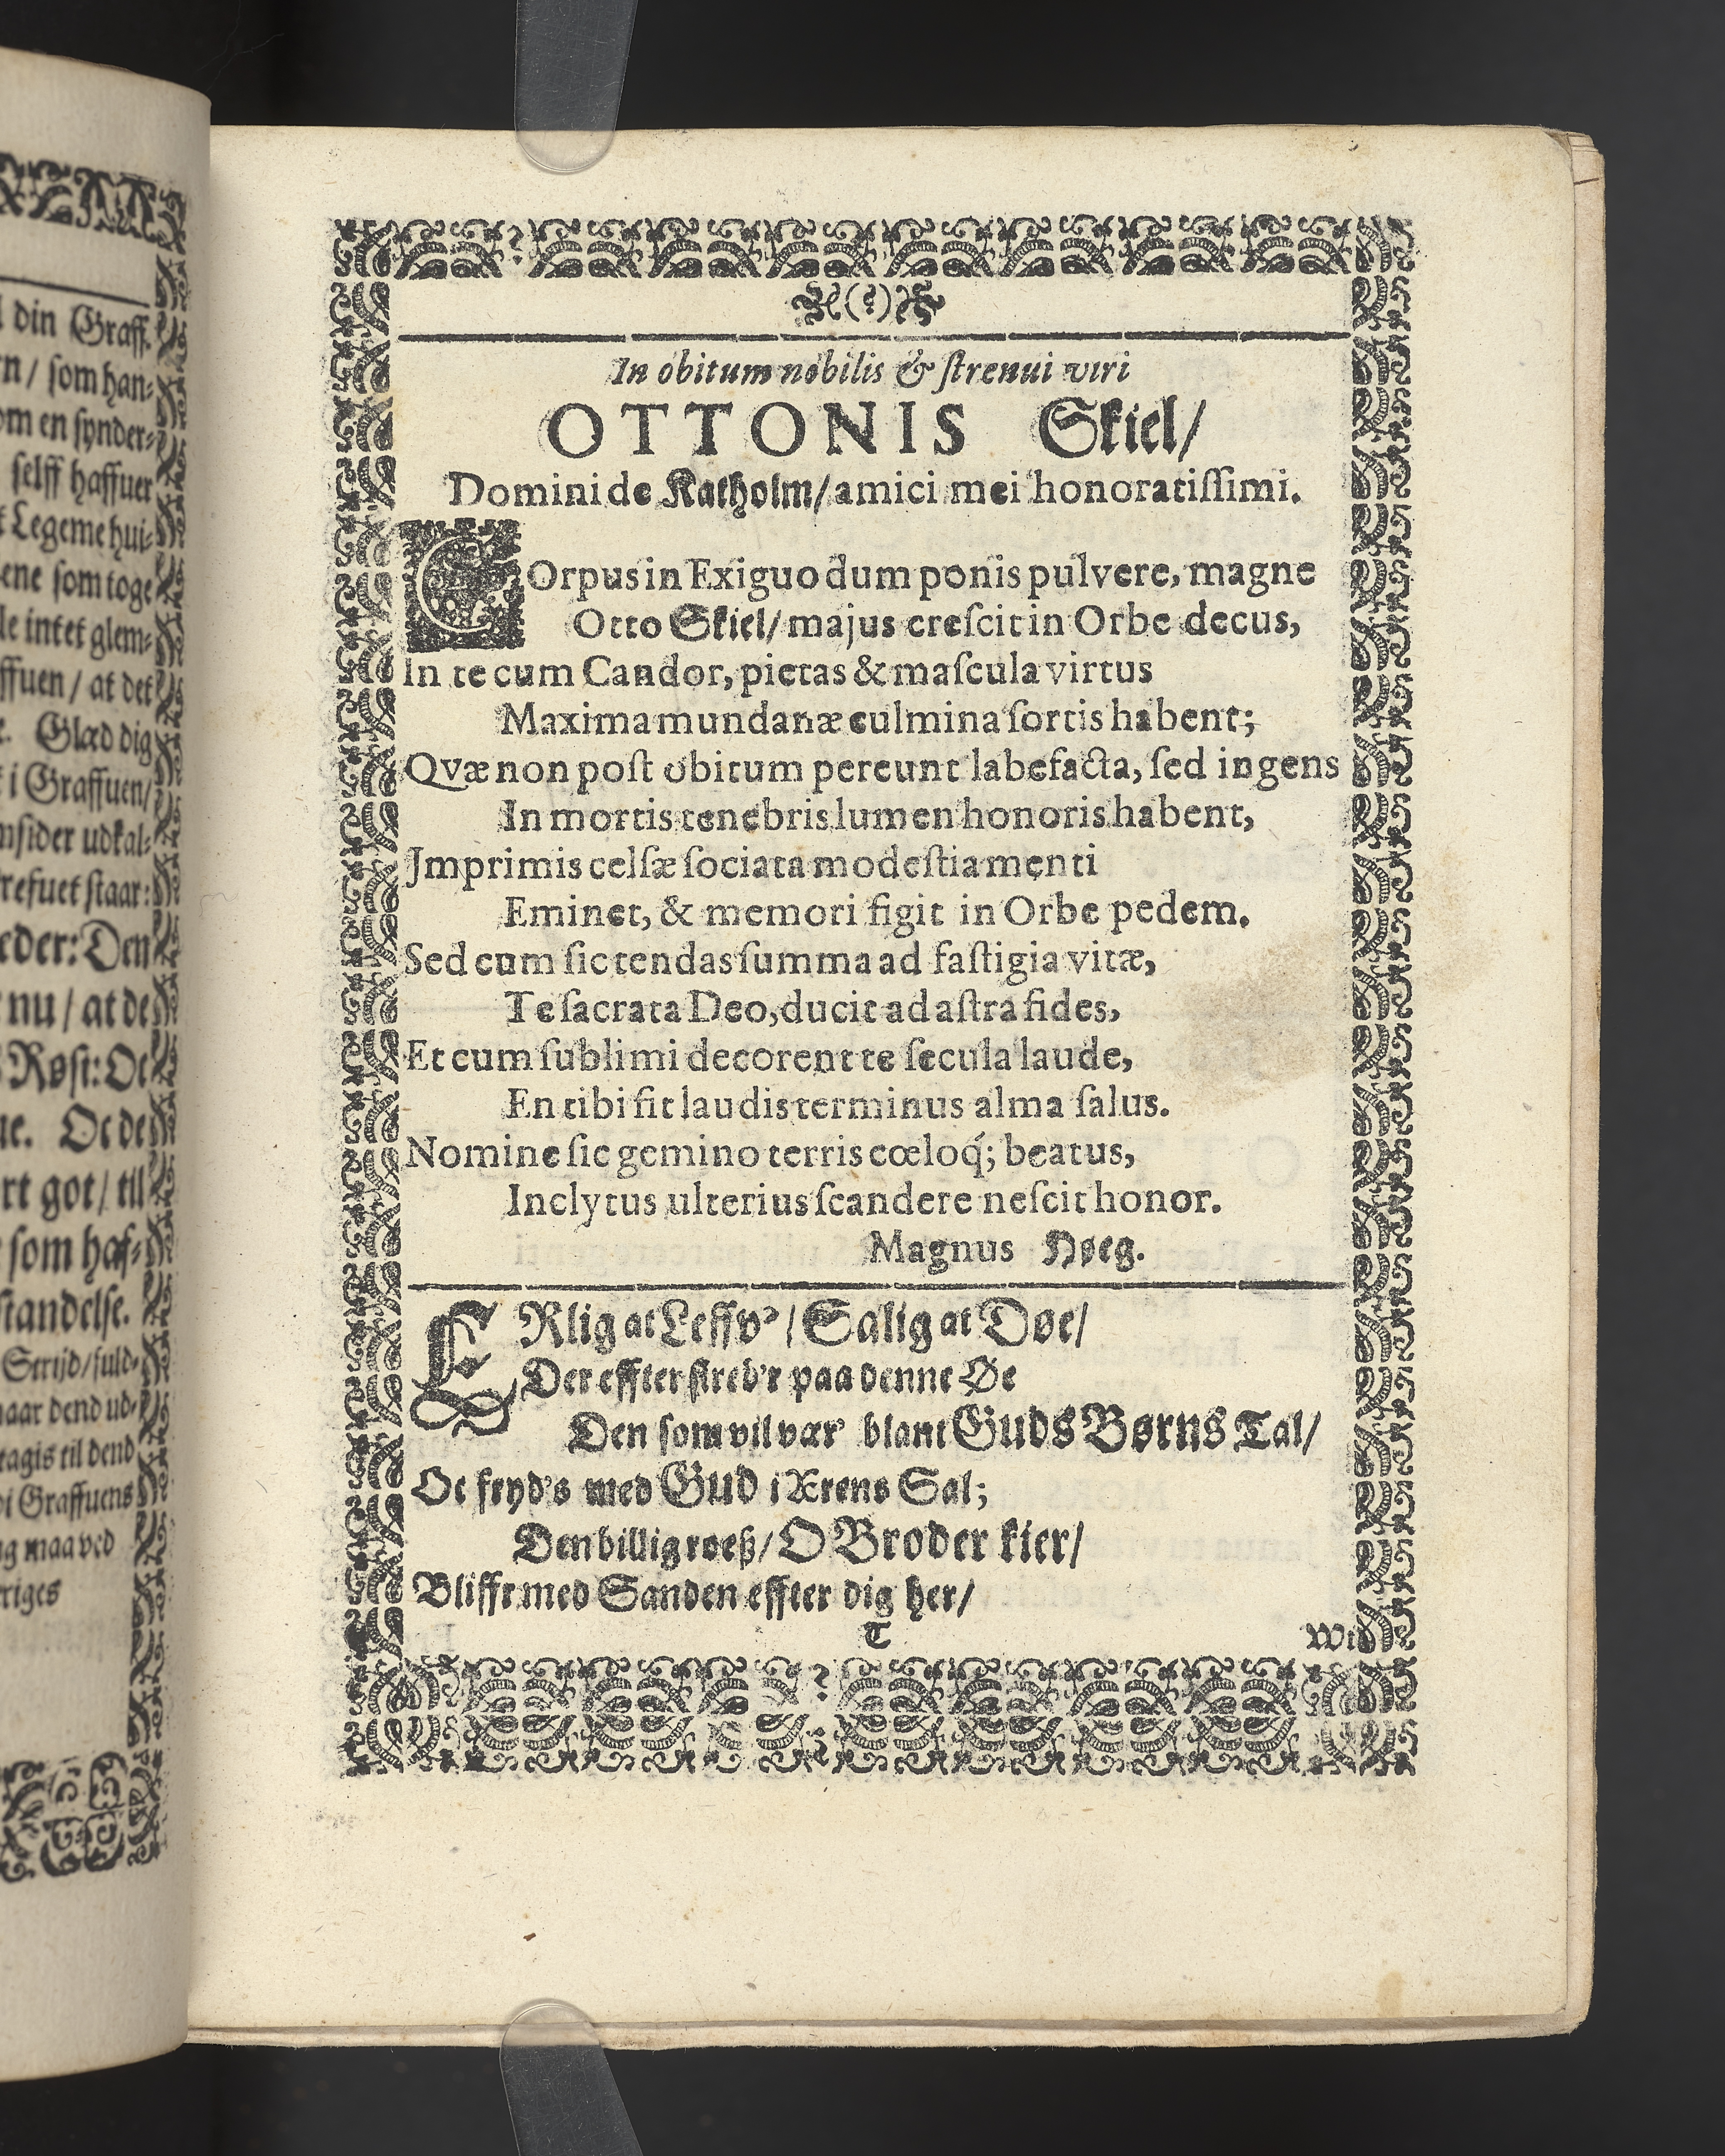 din Graff.
rn / som han-
om en synder-
selff haffuer
Legeme hui-
ene som toge
le intet glem-
ffuen / at det
Glæd dig
i Graffuen/
nsider udkal-
refuet staar:
eder: Den
nu / at de
Røst: Oc
ue. Oc de
rt got / till
som haf-
standelse.
Strijd/fuld-
naar dend ud-
tagis til dend
i Graffuens
ig maa ved
riges
(?)
In obitum nobilis & ſtrenui viri
OTTONIS Skiel/
Domini de Katholm/ amici mei honoratiſſimi.
COrpus in Exiguo dum ponis pulvere, magne
Otto Skiel/ majus creſcit in Orbe decus,
In te cum Candor, pietas & maſcula virtus
Maxima mundanæ culmina ſortis habent;
Qvæ non poſt obitum pereunt labefacta, ſed ingens
In mortis tenebris lumen honoris habent,
Jmprimis celſæ ſociata modeſtia menti
Eminet, & memori figit in Orbe pedem.
Sed cum ſic tendas ſumma ad faſtigia vitæ,
Te ſacrata Deo, ducit ad aſtra fides,
Et cum ſublimi decorent te ſecula laude,
En tibi fit laudis terminus alma ſalus.
Nomine ſic gemino terris cœloq́; beatus,
Inclytus ulterius ſcandere neſcit honor.
Magnus Høeg.
ERlig at Leffv'/ Salig at Døe/
Der effter streb'r paa denne Øe
Den som vil vær' blant GUds Børns Tal/
Oc fryd's med GUD i Ærens Sal;
Den billig roeß/ O Broder kier/
Bliffr med Sanden effter dig her/
T
Wi